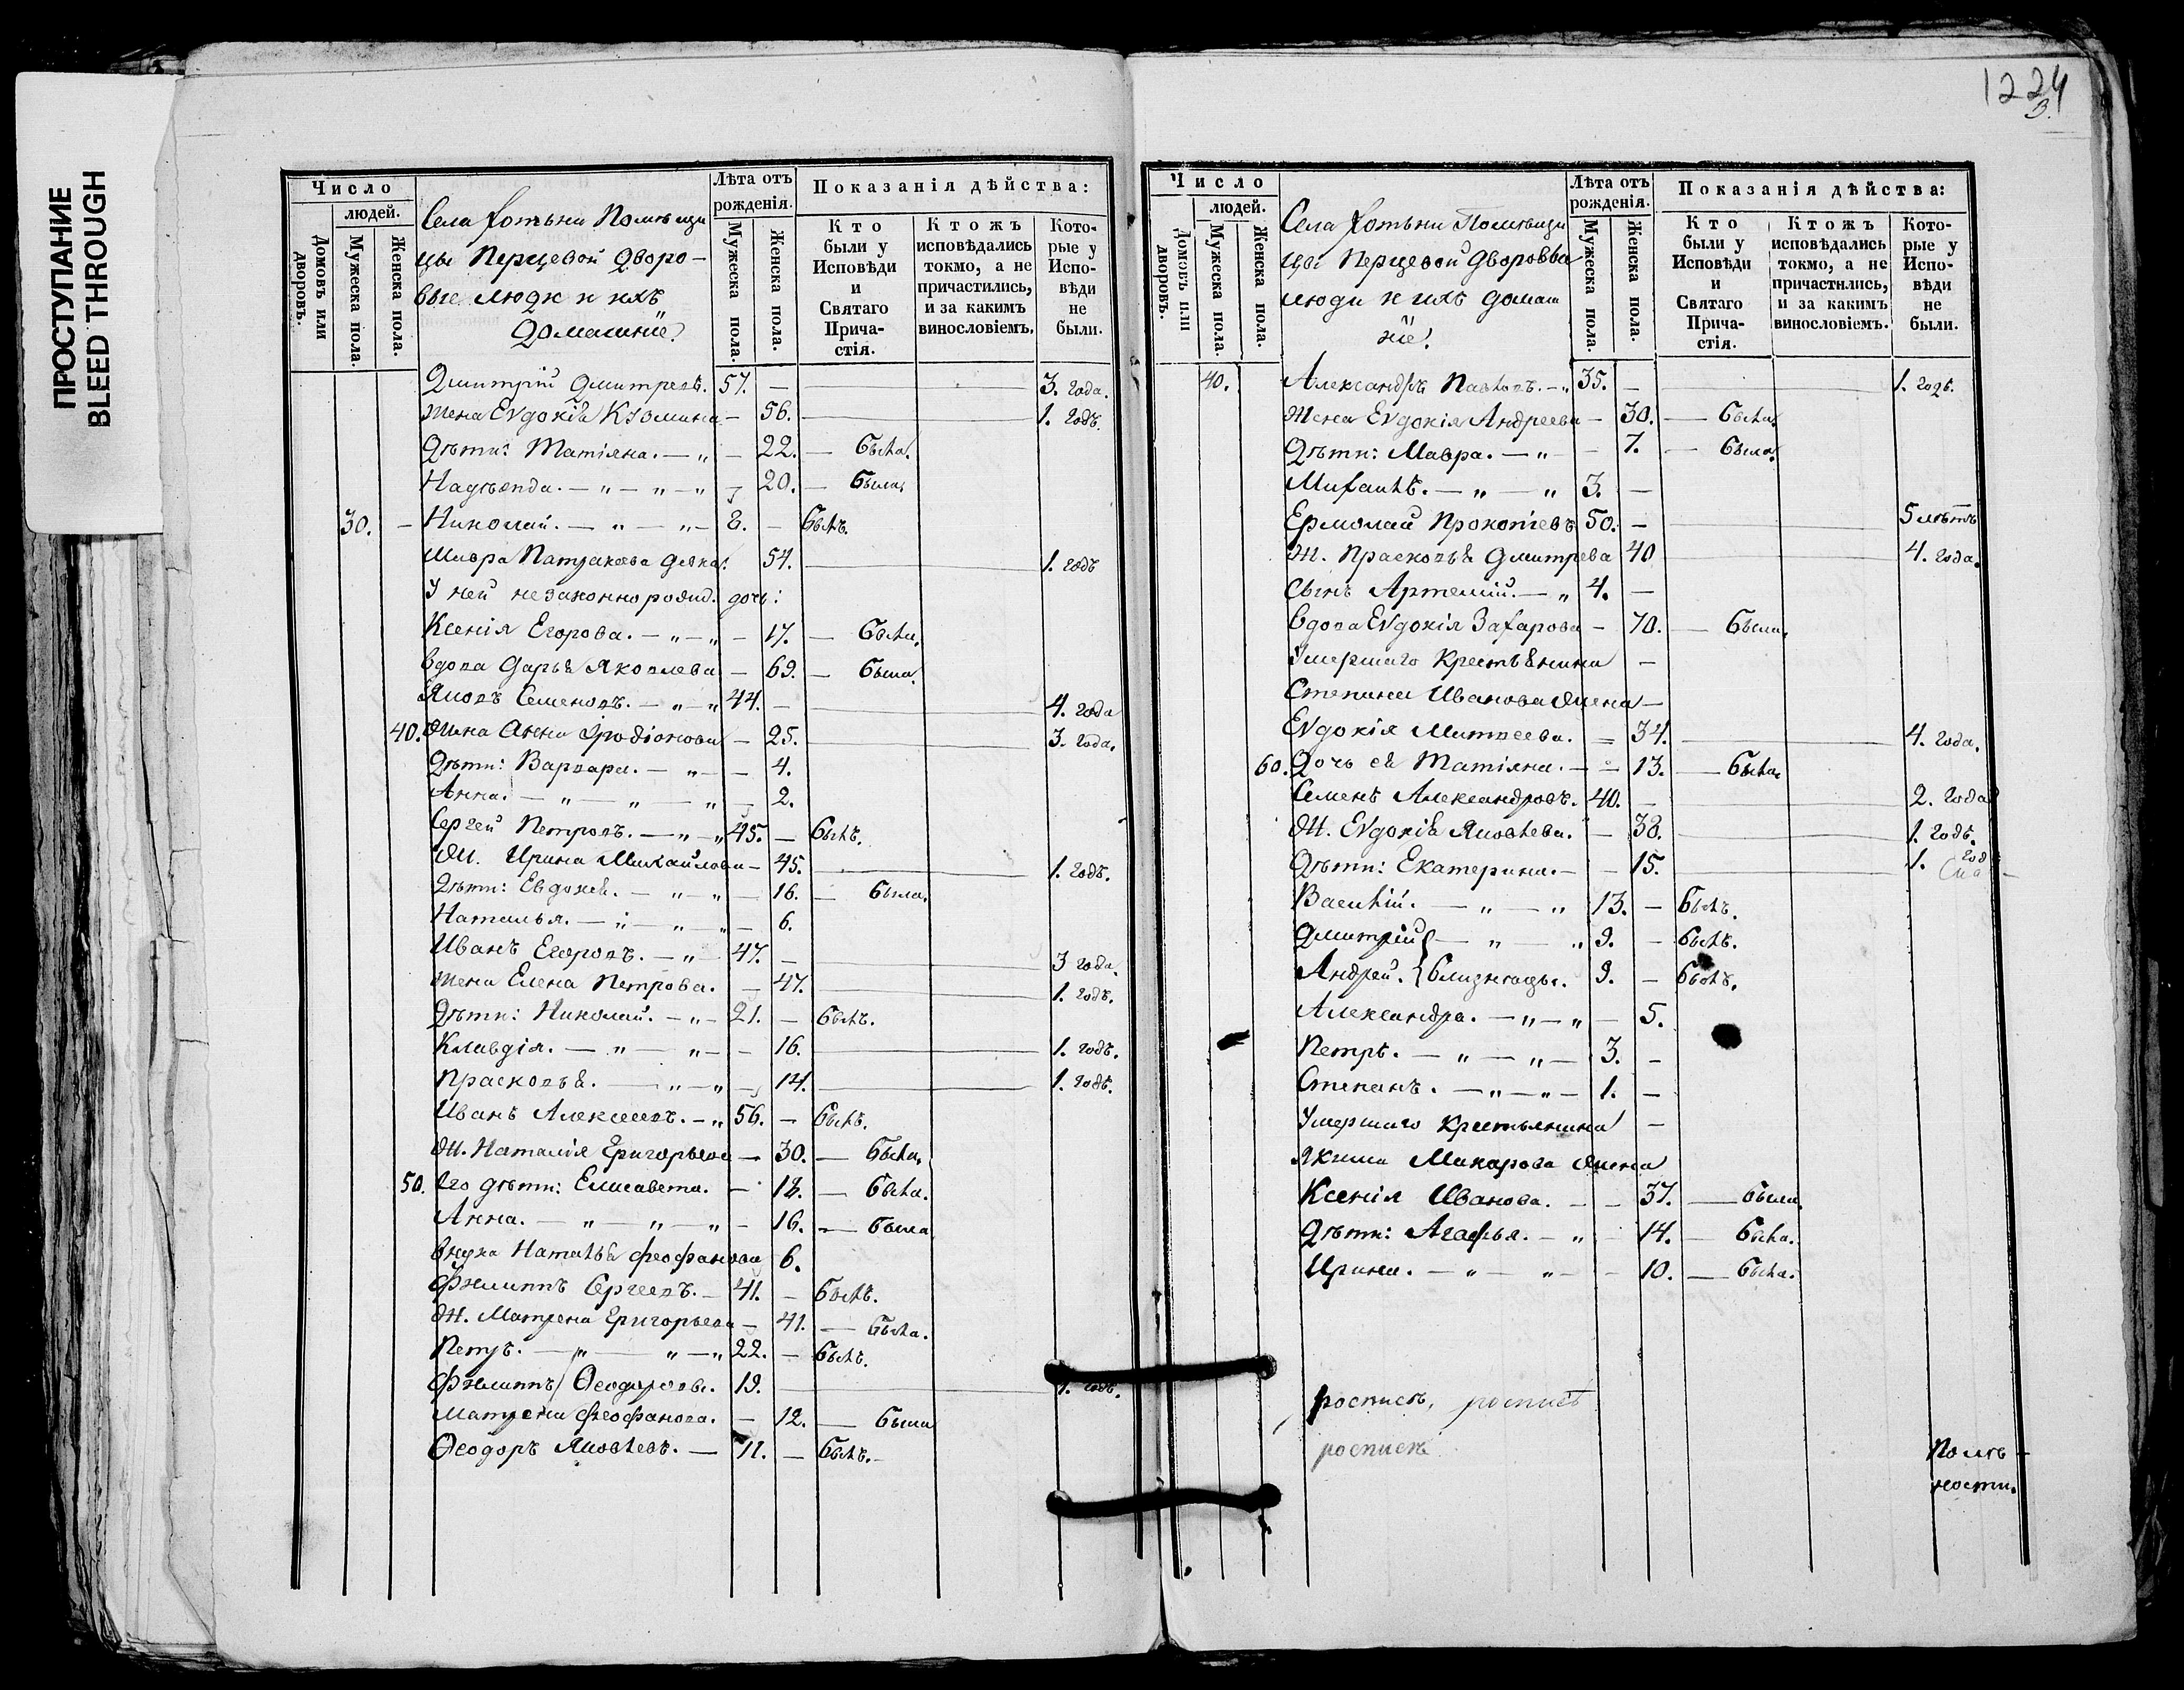 ПРОСТУПАНИЕ
BLEED THROUGH
1224
3.
Число
людей.
Домовъ или дворовъ.
Мужеска пола.
Женска пола.
Села Хотьни Помѣщи
цы Перцевой Дворо-
вые люди и ихъ
Домашніе.
Лѣта отъ рожденія.
Мужеска пола.
Женска пола.
Показанія дѣйства:
Кто были у Исповѣди и Святаго Прича-стія.
Ктожъ исповѣдались токмо, а не причастились, и за какимъ винословіемъ.
Кото-рые у Испо-вѣди не были.
Дмитрій Дмитревъ. 57. — 3. года.
жена Еvдокія Козмина — 56. 1. годъ.
Дѣти: Матіяна. — „ — 22. — была.
Надѣжда. — „ — „ — „ — 20. — была.
30. — Николай. — „ — „ — 8. — былъ.
Мавра Патракеева девка. 54. 1. годъ
У ней незаконнорожд. дочь:
Ксенія Егорова. — „ — „ — 17. — была.
вдова Дарья Яковлева — 69. — была.
Яковъ Семеновъ. — „ — „ 44. — 4. года
40. Жена Анна Иродіонова — 25. 3. года.
Дѣти: Варвара. — „ — — 4.
Анна. — „ — „ — „ — 2.
Сергей Петровъ. — „ — „ 45. — былъ.
Ж. Ирина Михайлова — 45. 1. годъ.
Дѣти: Евдокея. — „ — „ — 16. — была.
Наталья. — „ — „ — „ — 6.
Иванъ Егоровъ. — „ 47. — 3 года.
жена Елена Петрова. — 47. 1. годъ.
Дѣти: Николай. — „ — 21. — былъ.
Клавдія. — „ — „ — — 16. 1. годъ.
Прасковья. — „ — „ — 14. 1. годъ.
Иванъ Алексеевъ. — „ 56. — былъ.
Ж. Наталія Григорьева — 30. — была.
50. Его дѣти: Елисавета. — 18. — была.
Анна. — „ — „ — „ — 16. — была
внука Наталья Феофанова 6.
Филиппъ Сергеевъ. — 41. — былъ.
Ж. Матрена Григорьева — 41. — была.
Петръ. — „ — „ — „ 22. — былъ.
Филиппъ Ѳеодоровъ. 19. — 1. годъ.
Матрена Феофанова. — 12. — была
Ѳеодоръ Яковлевъ. — 11. — былъ. —
Число
людей.
Домовъ или дворовъ.
Мужеска пола.
Женска пола.
Села Хотьни Помѣщи
цы Перцевой Дворовые
люди и ихъ домаш
ніе.
Лѣта отъ рожденія.
Мужеска пола.
Женска пола.
Показанія дѣйства:
Кто были у Исповѣди и Святаго Прича-стія.
Ктожъ исповѣдались токмо, а не причастились, и за какимъ винословіемъ.
Кото-рые у Испо-вѣди не были.
40. Александръ Павловъ. — „ 35. — 1. годъ.
Жена Еvдокія Андреева — 30. — была.
Дѣти: Мавра. — „ — — 7. — была.
Михаилъ. — „ — „ 3. —
Ермолай Прокопіевъ 50. — 5 лѣтъ
Ж. Прасковья Дмитрева 40 4. года.
Сынъ Артемій. — „ 4. —
вдова Еvдокія Захарова — 70. — была.
Умершаго Крестьянина —
Степана Иванова жена —
Еvдокія Матвеева. — 34. 4. года.
60. Дочь ея Татіяна. — — 13. — была.
Семенъ Александровъ. 40. — 2. года
Ж. Еvдокія Яковлева. — 38. 1. годъ.
Дѣти: Екатерина. — — 15. 1. год
Василій. — „ — „ 13. — былъ.
Дмитрій — „ — „ 9. — былъ.
Андрей. { близнецы. 9. — былъ.
Александра. — „ — „ — 5.
Петръ. — „ — „ — 3. —
Степанъ. — „ — „ — 1. —
Умершаго Крестьянина —
Якима Макарова жена
Ксенія Иванова. — — 37. — была.
Дѣти: Агафья. — „ — 14. — была.
Ирина. — „ — „ — — 10. — была.
росписъ, росписъ
росписъ